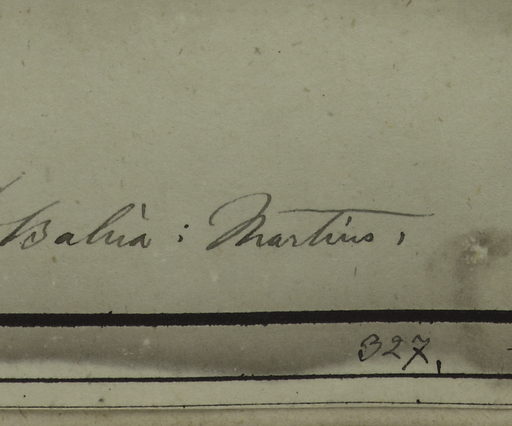 Bahia : Martius,
327,